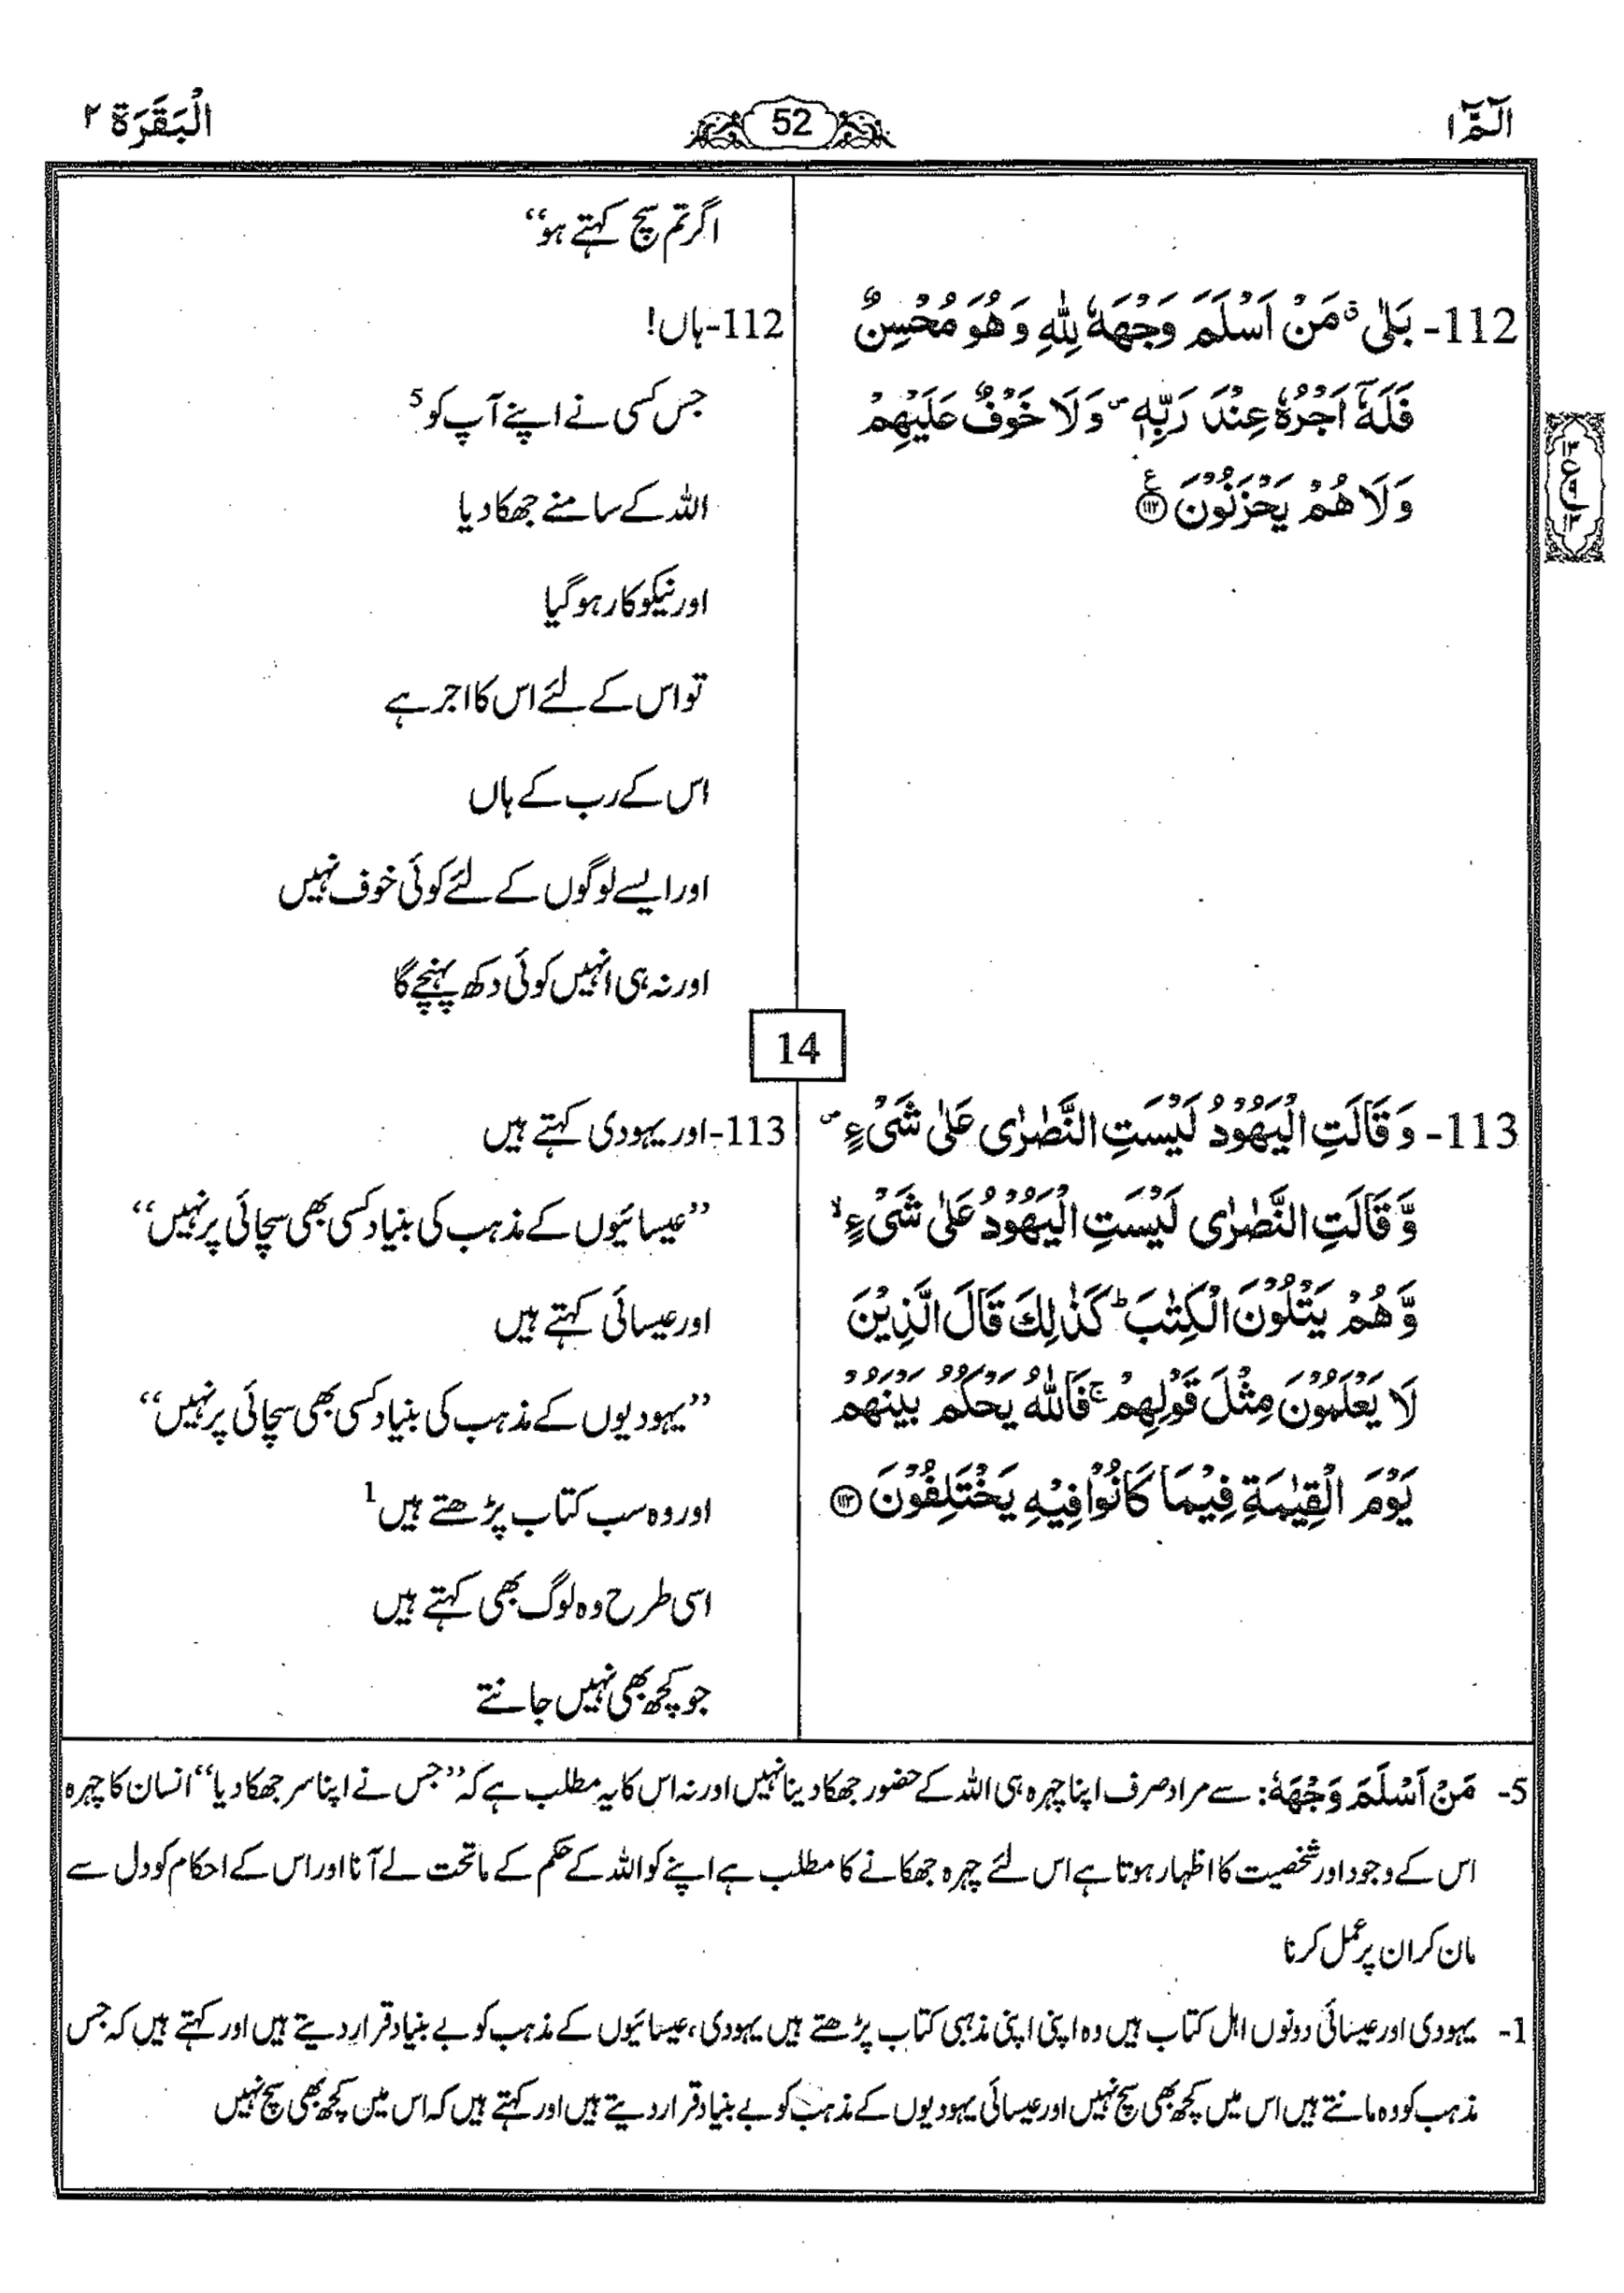 الٓمّٓ ۱
52
الْبَقَرَة ۲
اگر تم سچ کہتے ہو‘‘
112- بَلٰى ۚ مَنْ اَسْلَمَ وَجْهَهٗ لِلّٰهِ وَ هُوَ مُحْسِنٌ
فَلَهٗۤ اَجْرُهٗ عِنْدَ رَبِّهٖ ۪ وَ لَا خَوْفٌ عَلَيْهِمْ
وَ لَا هُمْ يَحْزَنُوْنَ ﴿۱۱۲﴾
112-ہاں!
جس کسی نے اپنے آپ کو 5
اللہ کے سامنے جھکا دیا
اور نیکو کار ہو گیا
تو اس کے لئے اس کا اجر ہے
اس کے رب کے ہاں
اور ایسے لوگوں کے لئے کوئی خوف نہیں
اور نہ ہی انہیں کوئی دکھ پہنچے گا
14
113- وَ قَالَتِ الْيَهُوْدُ لَيْسَتِ النَّصٰرٰى عَلٰى شَيْءٍ ۪
وَّ قَالَتِ النَّصٰرٰى لَيْسَتِ الْيَهُوْدُ عَلٰى شَيْءٍ ۙ
وَّ هُمْ يَتْلُوْنَ الْكِتٰبَ ؕ كَذٰلِكَ قَالَ الَّذِيْنَ
لَا يَعْلَمُوْنَ مِثْلَ قَوْلِهِمْ ۚ فَاللّٰهُ يَحْكُمُ بَيْنَهُمْ
يَوْمَ الْقِيٰمَةِ فِيْمَا كَانُوْا فِيْهِ يَخْتَلِفُوْنَ ﴿۱۱۳﴾
113-اور یہودی کہتے ہیں
’’عیسائیوں کے مذہب کی بنیاد کسی بھی سچائی پر نہیں‘‘
اور عیسائی کہتے ہیں
’’یہودیوں کے مذہب کی بنیاد کسی بھی سچائی پر نہیں‘‘
اور وہ سب کتاب پڑھتے ہیں 1
اسی طرح وہ لوگ بھی کہتے ہیں
جو کچھ بھی نہیں جانتے
5- مَنْ اَسْلَمَ وَجْهَهٗ: سے مراد صرف اپنا چہرہ ہی اللہ کے حضور جھکا دینا نہیں اور نہ اس کا یہ مطلب ہے کہ ’’جس نے اپنا سر جھکا دیا‘‘ انسان کا چہرہ
اس کے وجود اور شخصیت کا اظہار ہوتا ہے اس لئے چہرہ جھکانے کا مطلب ہے اپنے کو اللہ کے حکم کے ماتحت لے آنا اور اس کے احکام کو دل سے
مان کر ان پر عمل کرنا
1- یہودی اور عیسائی دونوں اہل کتاب ہیں وہ اپنی اپنی مذہبی کتاب پڑھتے ہیں یہودی، عیسائیوں کے مذہب کو بے بنیاد قرار دیتے ہیں اور کہتے ہیں کہ جس
مذہب کو وہ مانتے ہیں اس میں کچھ بھی سچ نہیں اور عیسائی یہودیوں کے مذہب کو بے بنیاد قرار دیتے ہیں اور کہتے ہیں کہ اس میں کچھ بھی سچ نہیں